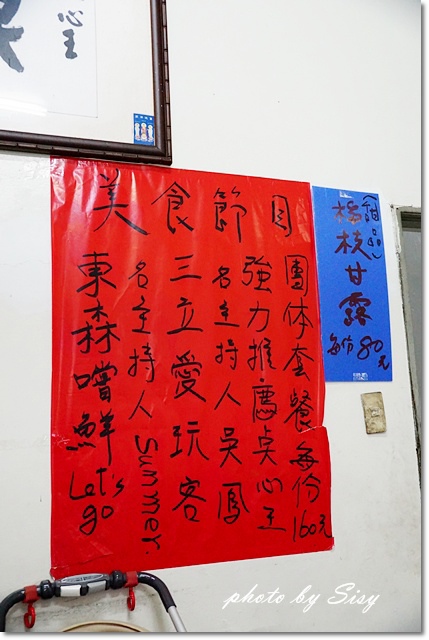 心王
美食節目
團体套餐每份160元
強力推薦点心王
名主持人吳鳳
三立愛玩客
名主持人Summer.
東森嚐鮮Let's go
(甜品)
楊枝甘露
每份80元
photo by Sisy